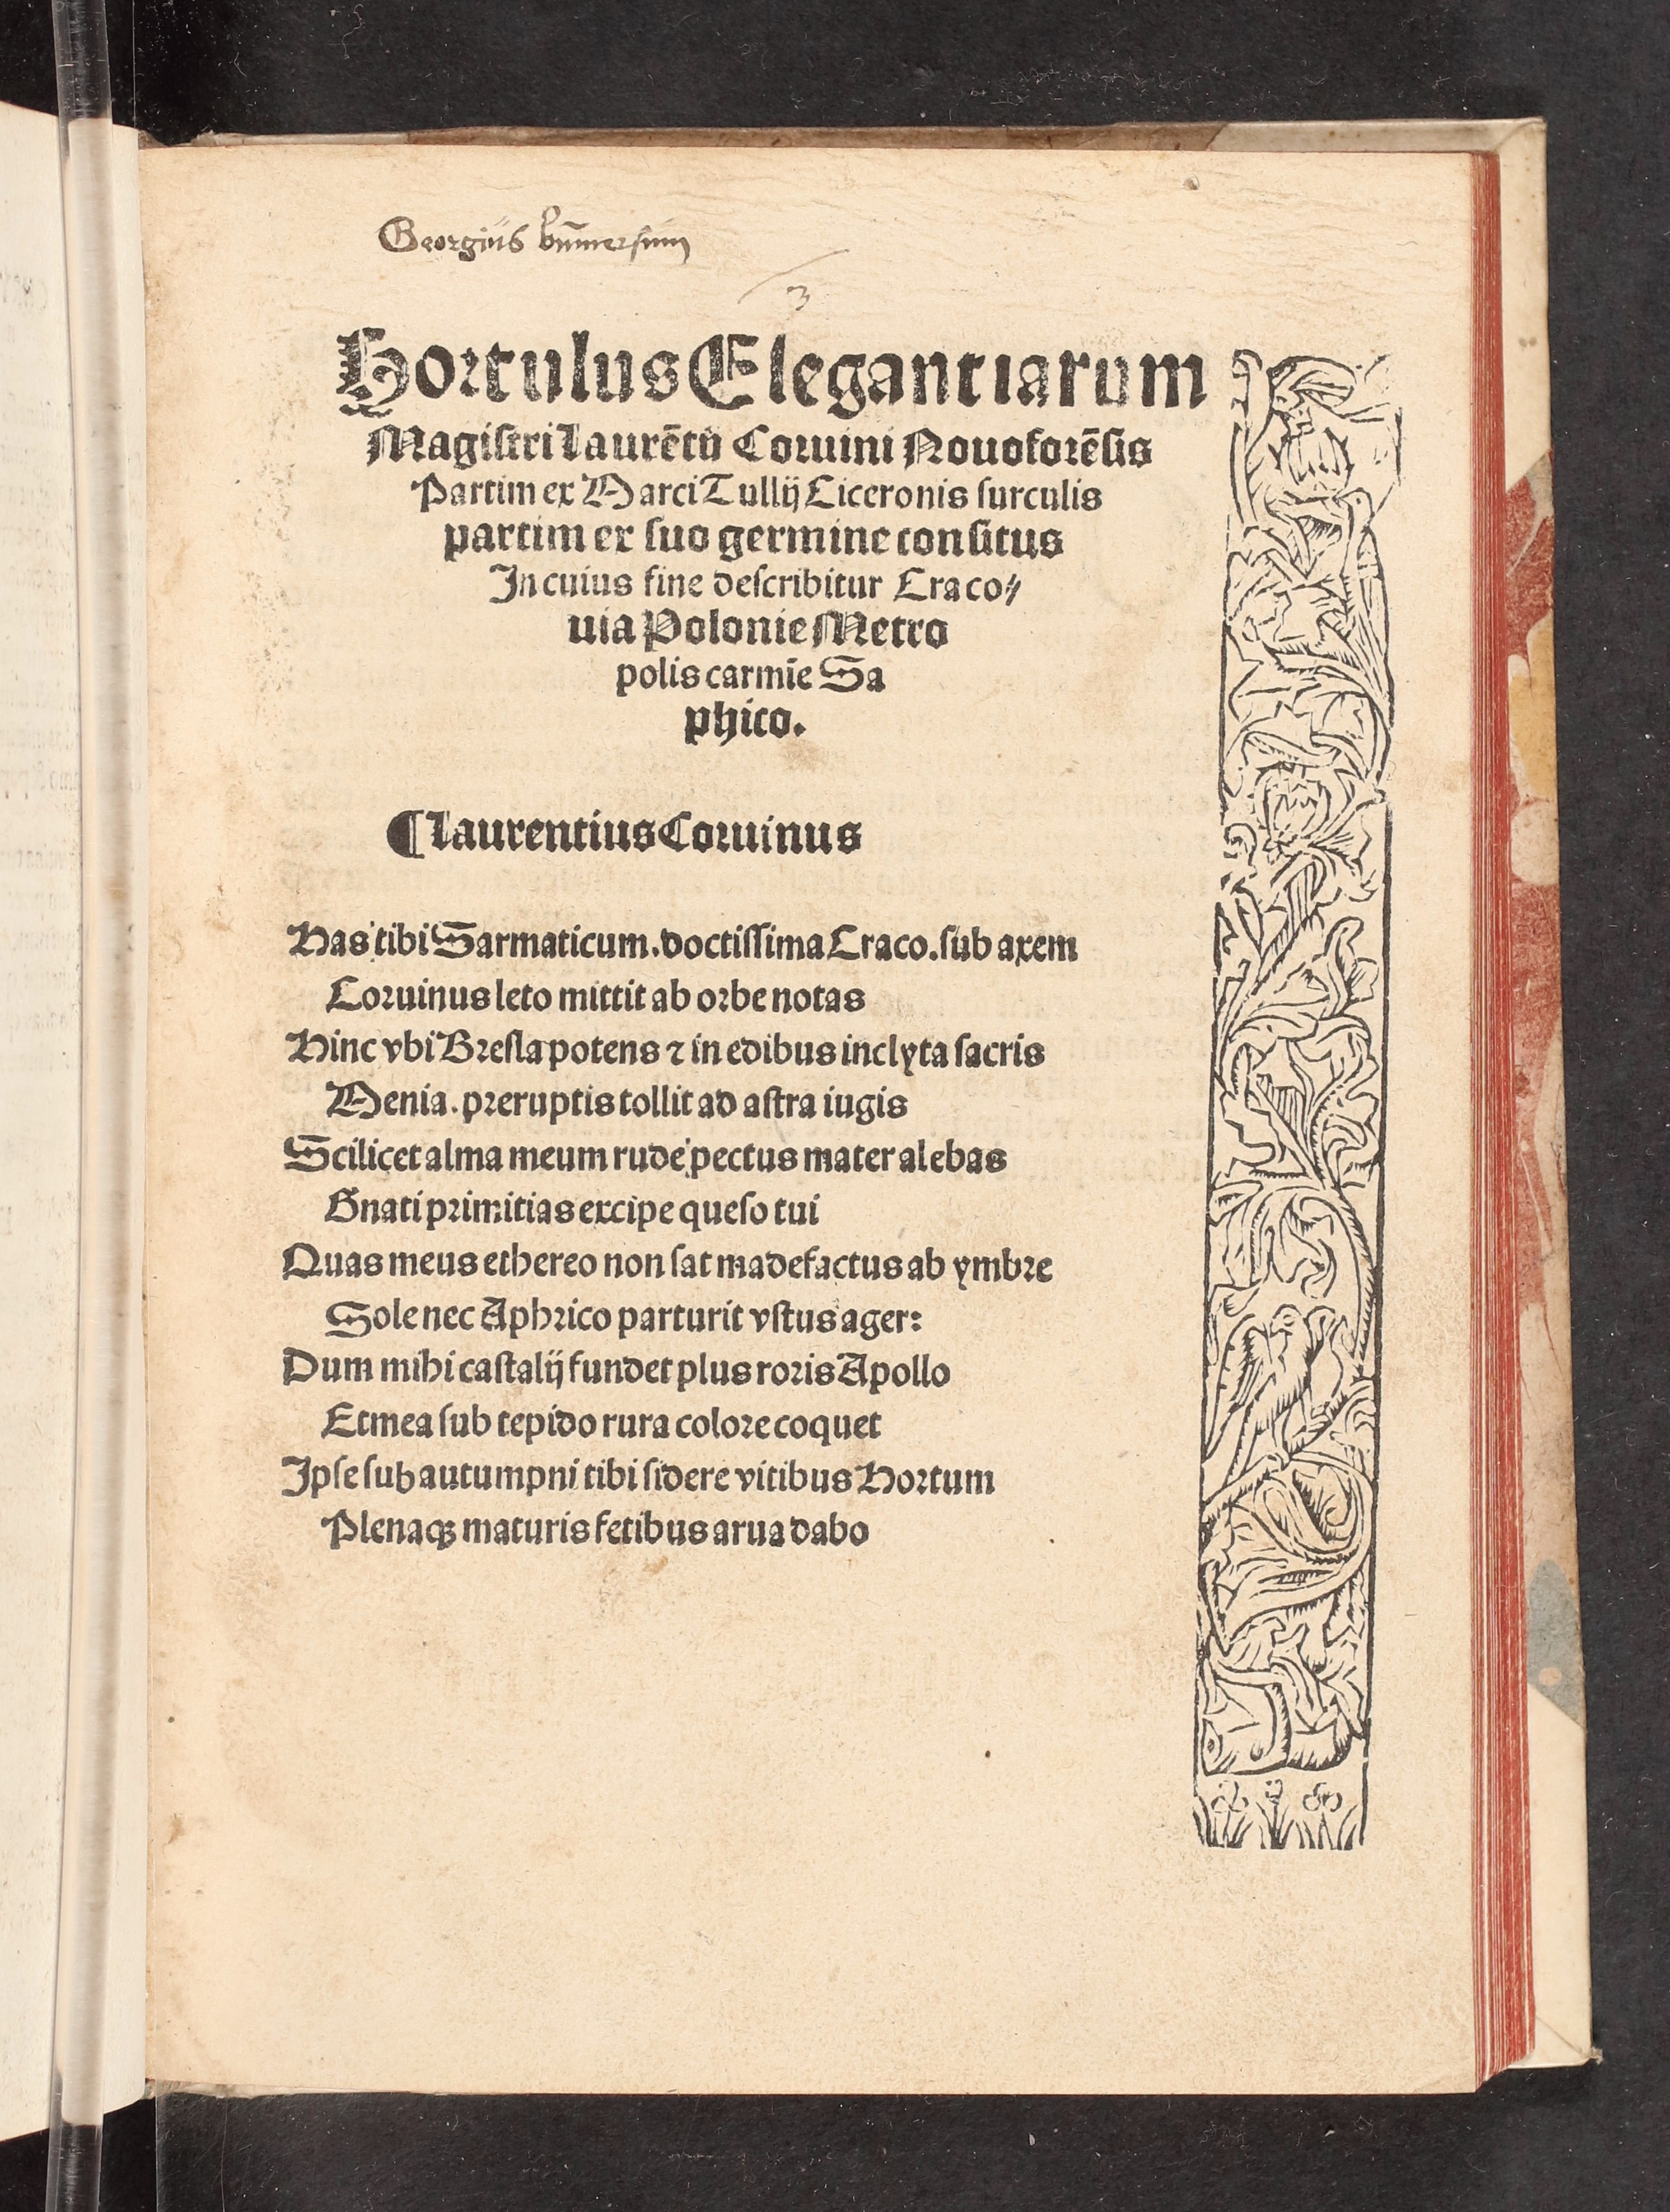 Georgius
3
Hortulus Elegantiarum
Magistri Laurētij Coruini Nouoforēsis
Partim ex Marci Tullij Ciceronis surculis
partim ex suo germine consitus
In cuius fine describitur Craco⸗
uia Polonie Metro
polis carmīe Sa
phico.
¶ Laurentius Coruinus
Has tibi Sarmaticum. doctissima Craco. sub axem
Coruinus leto mittit ab orbe notas
Hinc vbi Bresla potens ⁊ in edibus inclyta sacris
Menia. preruptis tollit ad astra iugis
Scilicet alma meum rude pectus mater alebas
Gnati primitias excipe queso tui
Quas meus ethereo non sat madefactus ab ymbre
Sole nec Aphrico parturit vstus ager:
Dum mihi castalij fundet plus roris Apollo
Et mea sub tepido rura colore coquet
Ipse sub autumpni tibi sidere vitibus Hortum
Plenaqꝫ maturis fetibus arua dabo